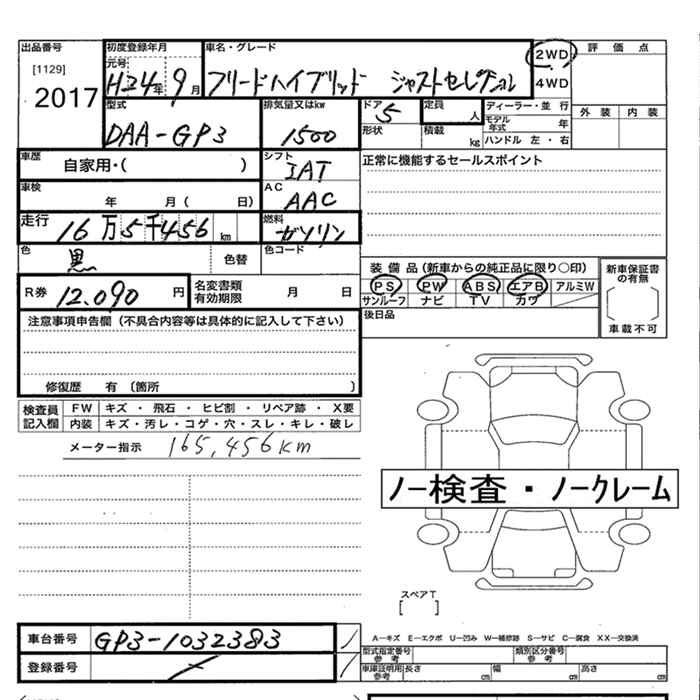 出品番号 初度登録年月 車名・グレード 2WD 評価点
[1129] 元号 4WD
2017 H24年 9月 フリードハイブリッド ジャストセレクション
外装 内装
型式 排気量又はkw ドア 定員 人 ディーラー・並 行
DAA-GP3 1500 5 モデル年式 年
形状 積載 kg ハンドル 左・右
車歴 自家用・( ) シフト IAT 正常に機能するセールスポイント
車検 年 月( 日) AC AAC
走行 16万5千456 km 燃料 ガソリン
色 黒 色替 色コード
装備品(新車からの純正品に限り○印) 新車保証書の有無
R券 12,090 円 名変書類有効期限 月 日
PS PW ABS エアB アルミW
サンルーフ ナビ TV カワ
[ ]
車載不可
注意事項申告欄(不具合内容等は具体的に記入して下さい) 後日品
修復歴 有 〔箇所 〕
検査員記入欄 FW キズ・飛石・ヒビ割・リペア跡・X要
内装 キズ・汚レ・コゲ・穴・スレ・キレ・破レ
メーター指示 165,456km
ノー検査・ノークレーム
スペアT
[ ]
車台番号 GP3-1032383
A―キズ E―エクボ U―凹み W―補修跡 S―サビ C―腐食 XX―交換済
登録番号
型式指定番号 参考 類別区分番号 参考
車庫証明用 参考 長さ cm 幅 cm 高さ cm